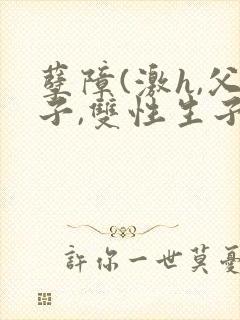 孽障(激h,父
子,雙性生子
許你一世莫憂